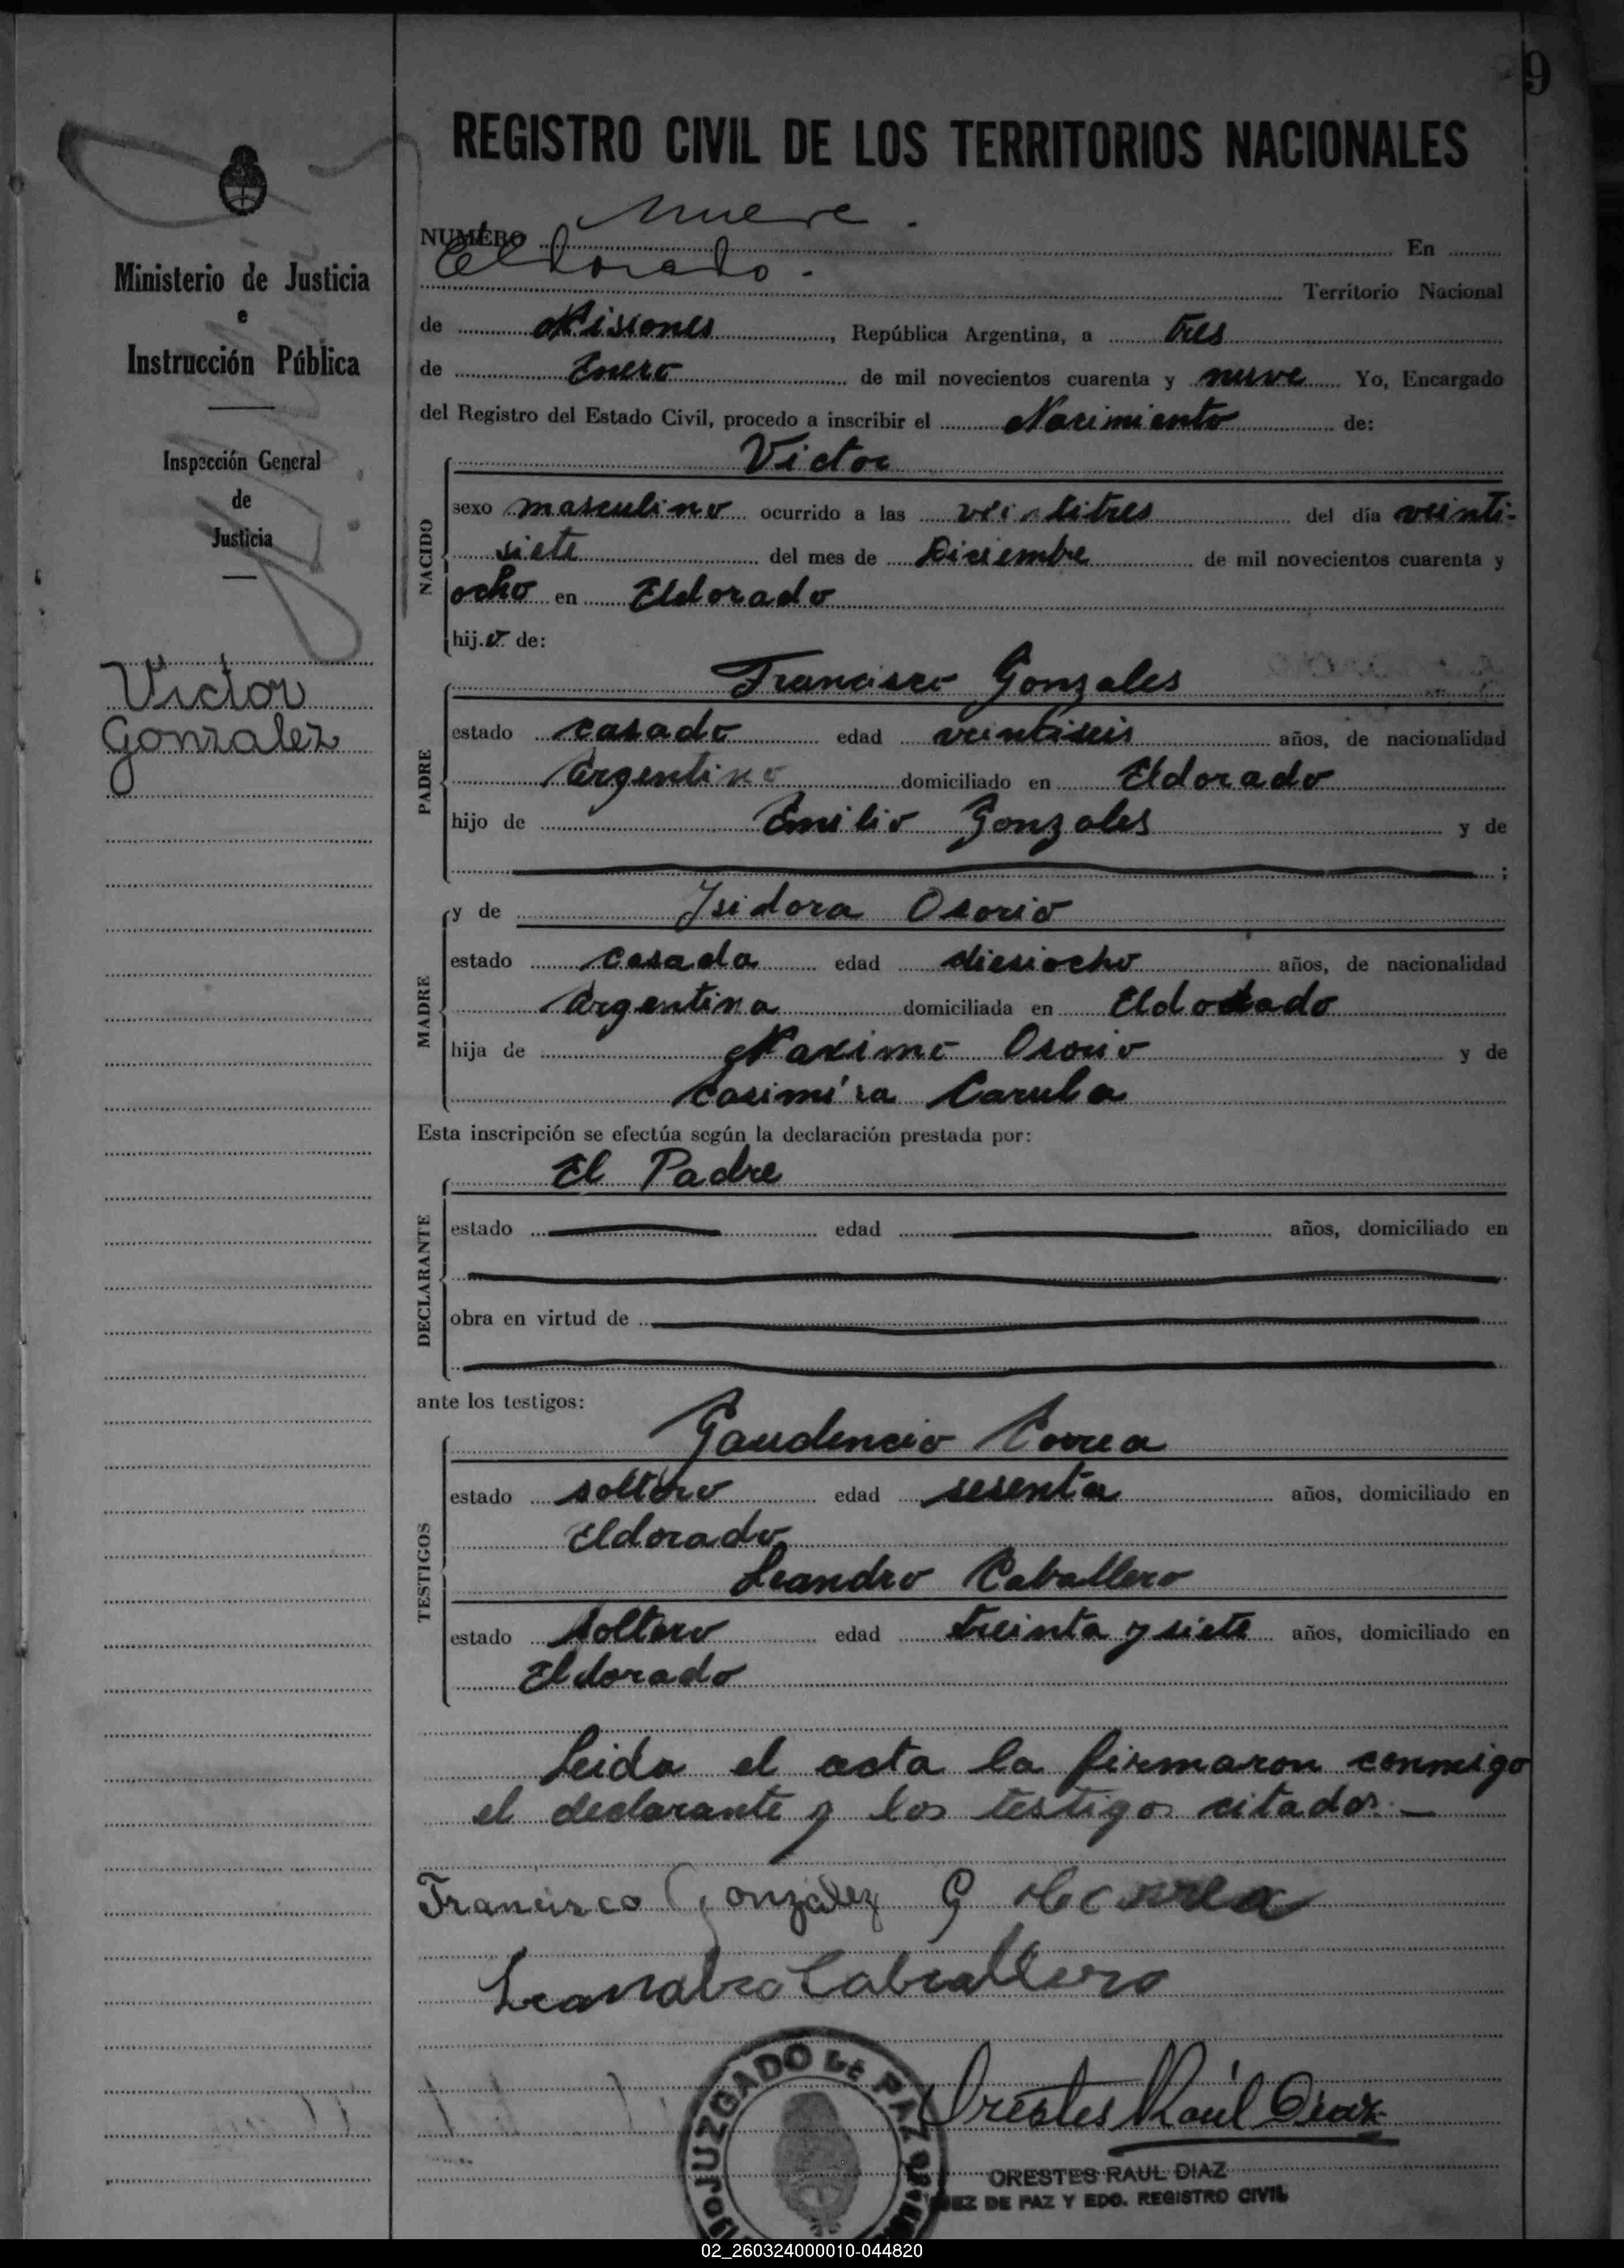 9
REGISTRO CIVIL DE LOS TERRITORIOS NACIONALES
Ministerio de Justicia
e
Instrucción Pública
Inspección General
de
Justicia
Victor
Gonzalez
NUMERO nueve. En
Eldorado. Territorio Nacional
de Misiones, República Argentina, a tres
de Enero de mil novecientos cuarenta y nueve Yo, Encargado
del Registro del Estado Civil, procedo a inscribir el Nacimiento de:
NACIDO
Victor
sexo masculino ocurrido a las veintitres del día veinti-
siete del mes de Diciembre de mil novecientos cuarenta y
ocho en Eldorado
hij.o de:
PADRE
Francisco Gonzales
estado casado edad veintiseis años, de nacionalidad
Argentino domiciliado en Eldorado
hijo de Emilio Gonzales y de
;
MADRE
y de Isidora Osorio
estado casada edad diesiocho años, de nacionalidad
Argentina domiciliada en Eldorado
hija de Maximo Osorio y de
Casimira
Esta inscripción se efectúa según la declaración prestada por:
DECLARANTE
El Padre
estado edad años, domiciliado en
obra en virtud de
ante los testigos:
TESTIGOS
Gaudencio Correa
estado soltero edad sesenta años, domiciliado en
Eldorado
Leandro Caballero
estado soltero edad treinta y siete años, domiciliado en
Eldorado
Leida el acta la firmaron conmigo
el declarante y los testigos citados.—
Francisco Gonzalez G
Leandro Caballero
JUZGADO de PAZ
Orestes Raúl Diaz
ORESTES RAUL DIAZ
JUEZ DE PAZ Y EDO. REGISTRO CIVIL
02_260324000010-044820